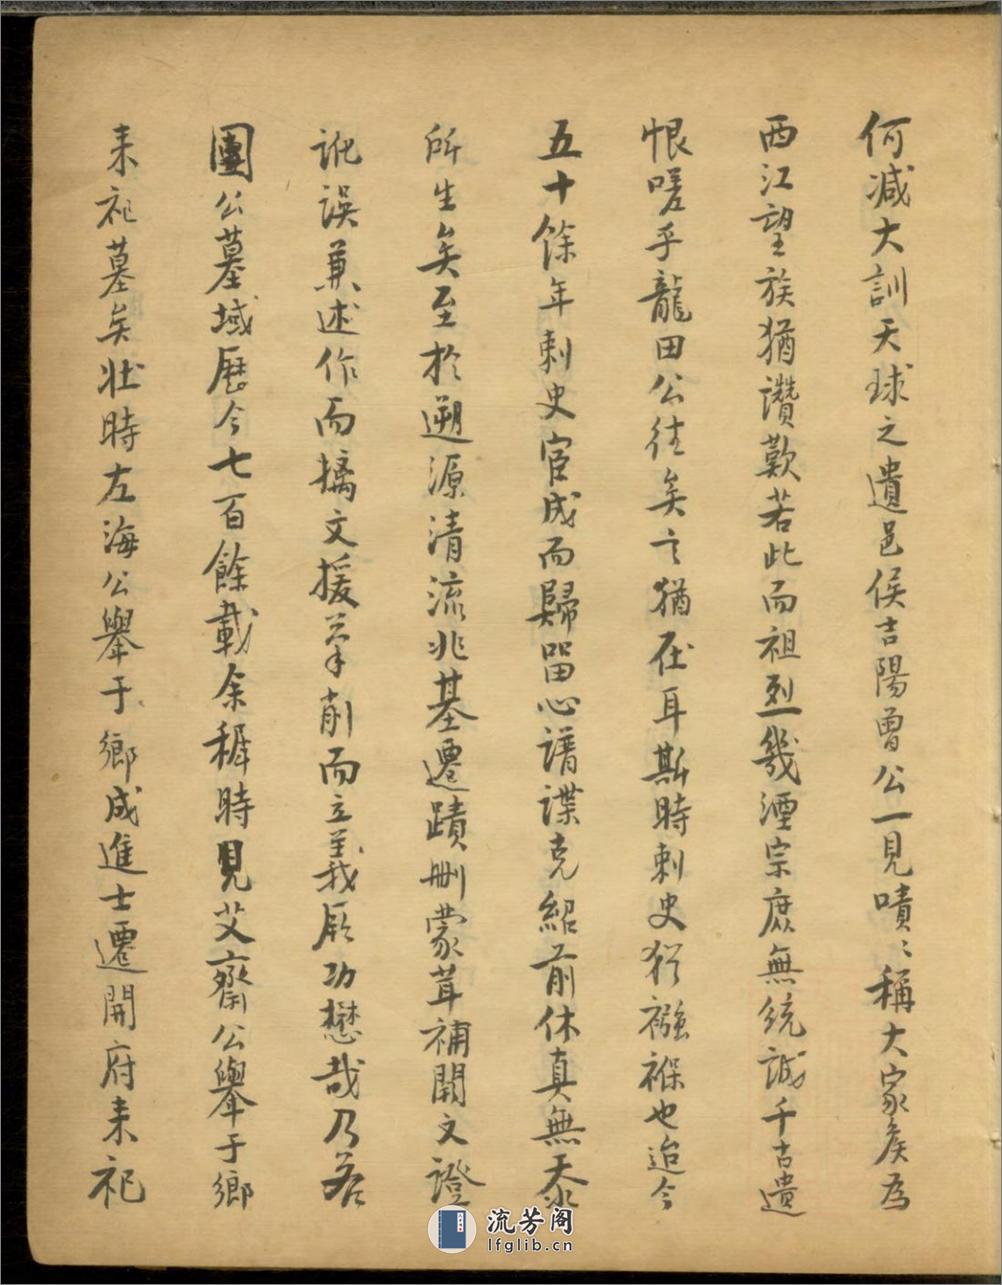 何减大訓天球之遺邑侯吉陽曾公一見嘖〻稱大家矦為
西江望族猶讚歎若此而祖烈幾湮宗庶無統誠千古遺
恨嗟乎龍田公徃矣言猶在耳斯時刺史猶襁褓也迨今
五十餘年刺史宦成而歸留心譜諜克紹前休真無忝
所生矣至於遡源清流兆基遷蹟刪蒙茸補闕文證
訛誤兼述作而摛文援筆削而立義厥功懋哉乃若
團公墓域歷今七百餘載余穉時見艾齋公舉于鄉
来祀墓矣壯時左海公舉于鄉成進士遷開府来祀
流芳阁
lfglib.cn